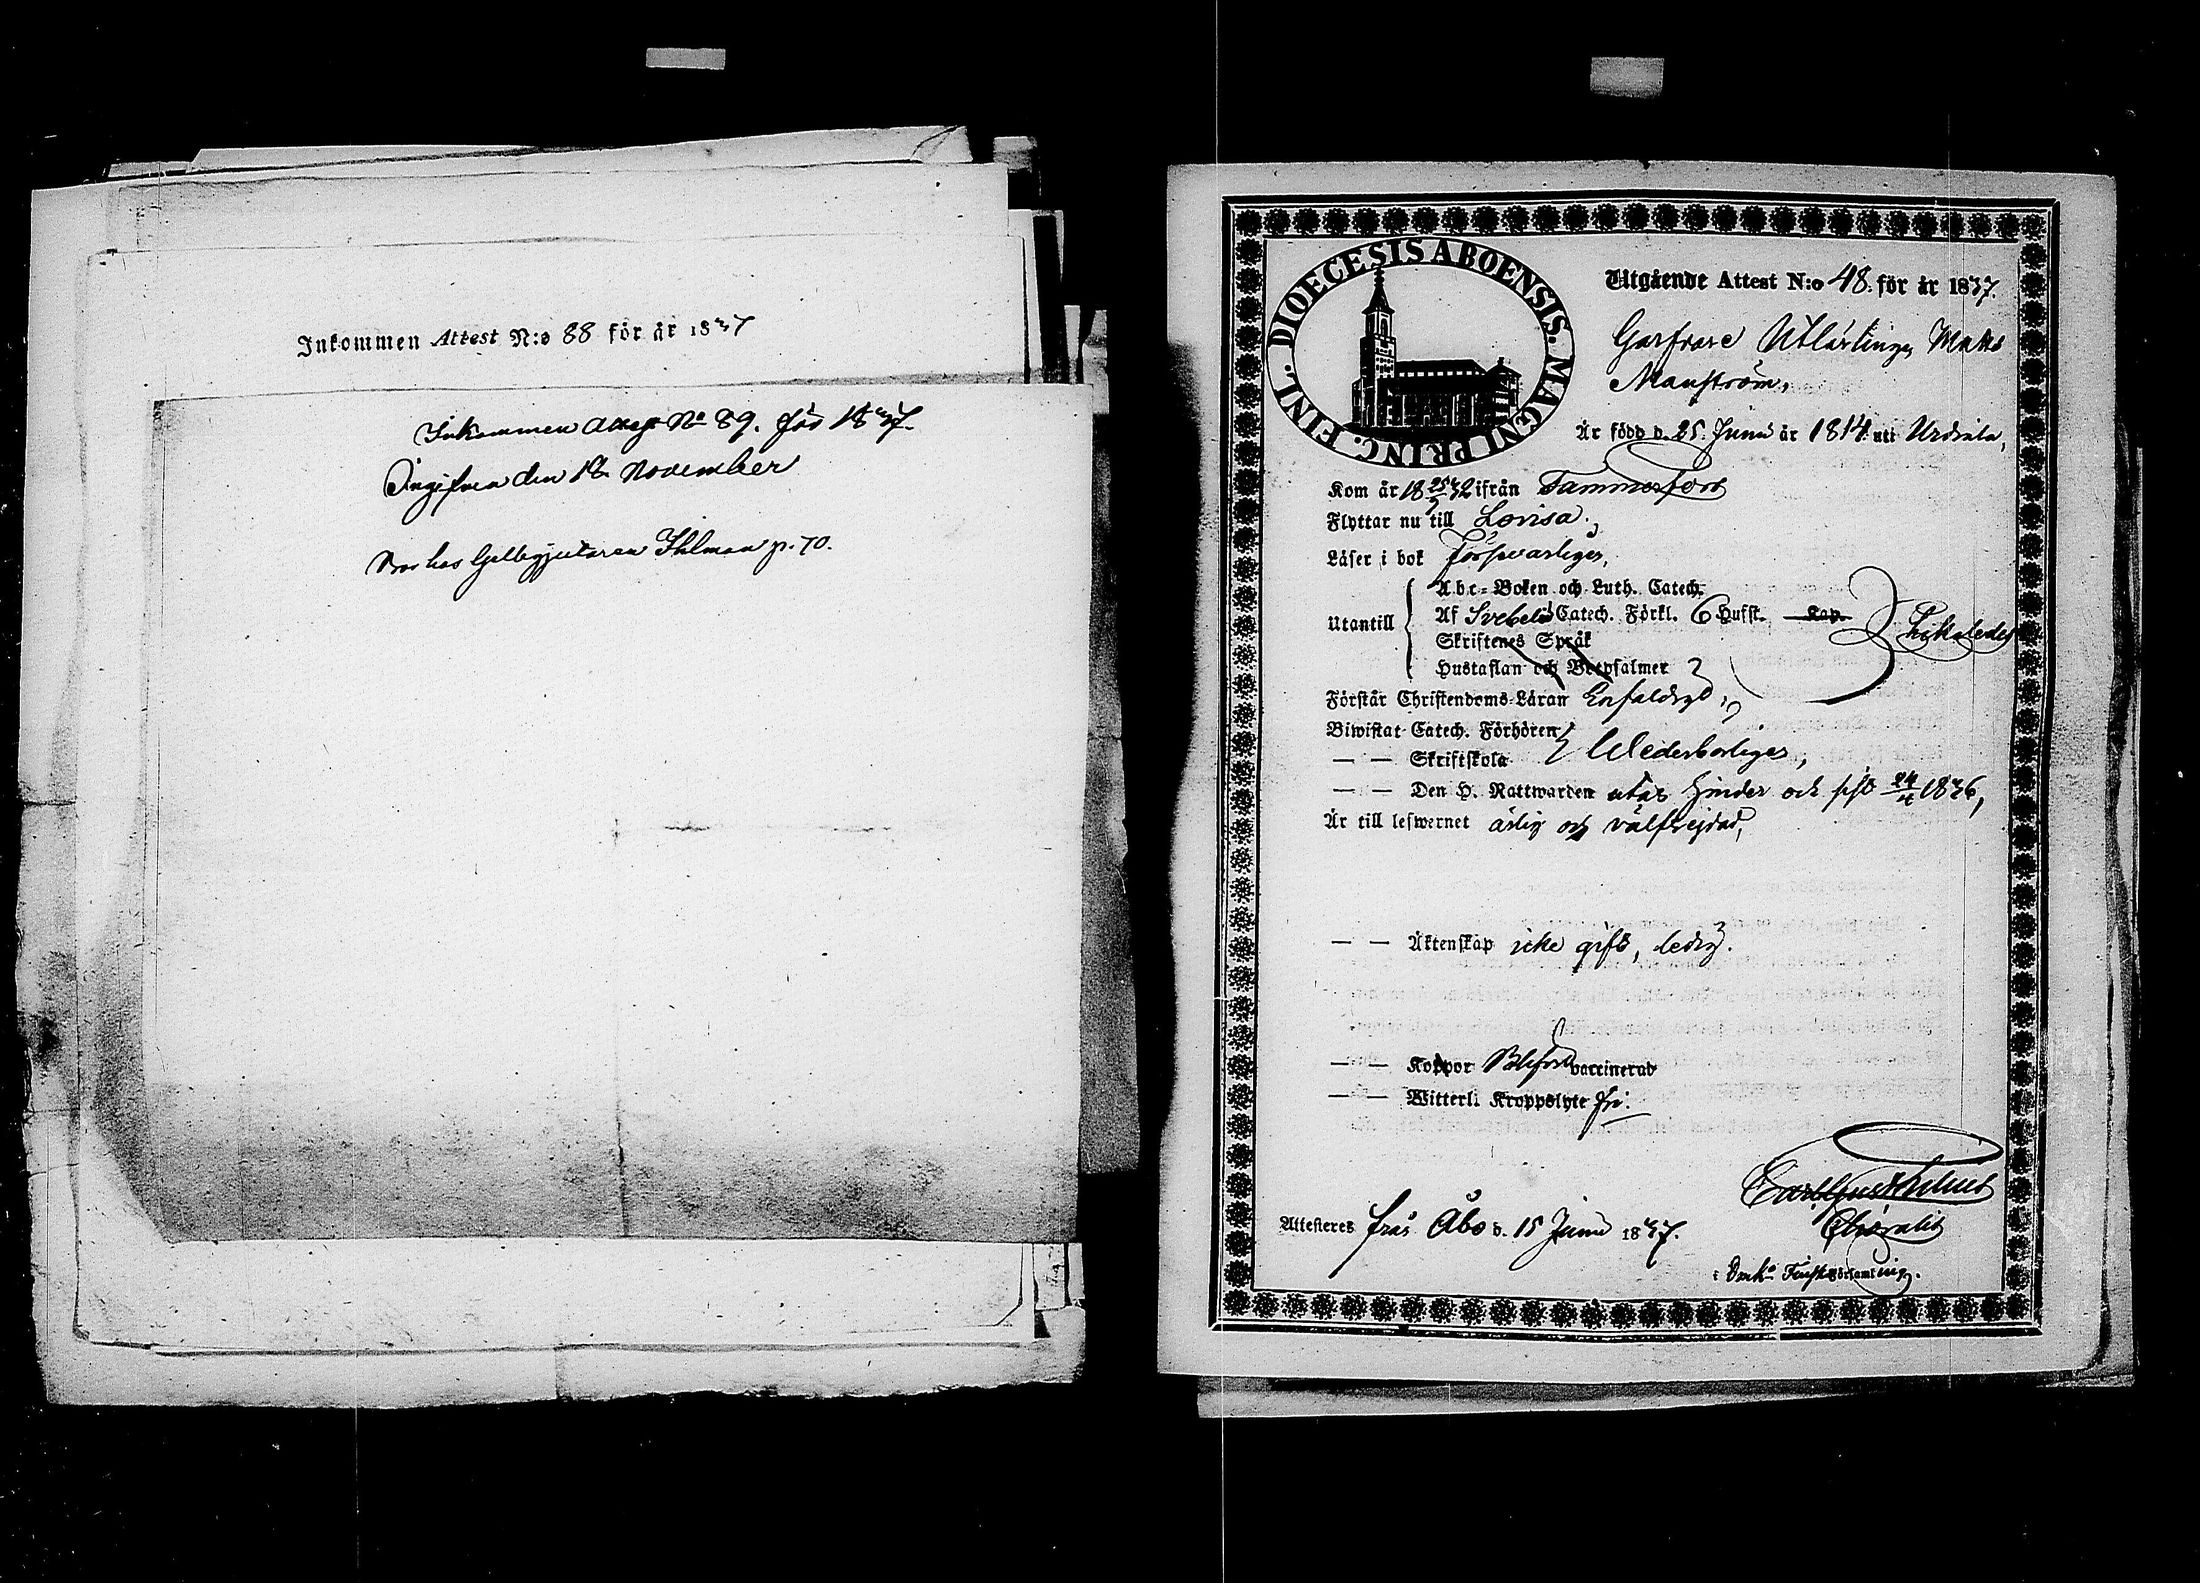 Inkommen Attest N:o 88 för år 1837
Inkommen Attest No 89. för 1837.
Ingifven den 18 November
Bor hos Gelbgjutaren Ihlman p. 70.
DIOECESIS ABOENSIS. MAGNI PRINC. FINL.
Utgående Attest N:o 48. för år 1837.
Garfvare Utlärlingen Matts
Manström,
Är född d. 25. Junii år 1814. uti Urdiala,
Kom år 18 25/7 32 ifrån Tammerfors
Flyttar nu till Lovisa.,
Läser i bok Försvarligen,
Utantill
Abc-Boken och Luth. Catech.
Af Svebelii Catech. Förkl. 6 Hufst. Kap.
Skriftenes Språk
Hustaflan och Botpsalmer
Förstår Christendoms-Läran Enfaldigt,
Biwistat Catech. Förhören
— — Skriftskola Wederborligen,
— — Den H. Nattwarden utan hinder och sist 24/4 1836,
Är till lefwernet ärlig och välfrejdad,
— — Äktenskap icke gift, ledig.
— — Koppor vaccinerad
— — Witterl. Kroppslyte fri.
Attesteras från Åbo d. 15 Junii 1837.
i Församling.